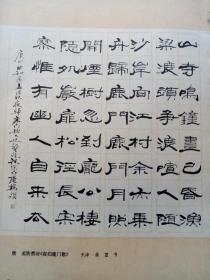 山寺鳴鐘晝已昏漁
梁渡頭爭渡喧人隨
沙岸向江村余亦乘
舟歸鹿門鹿門月照
開煙樹忽到龐公棲
隱處巖扉松徑長寂
寥惟有幽人自來去
唐 孟浩然诗《夜归鹿门歌》 天津 书